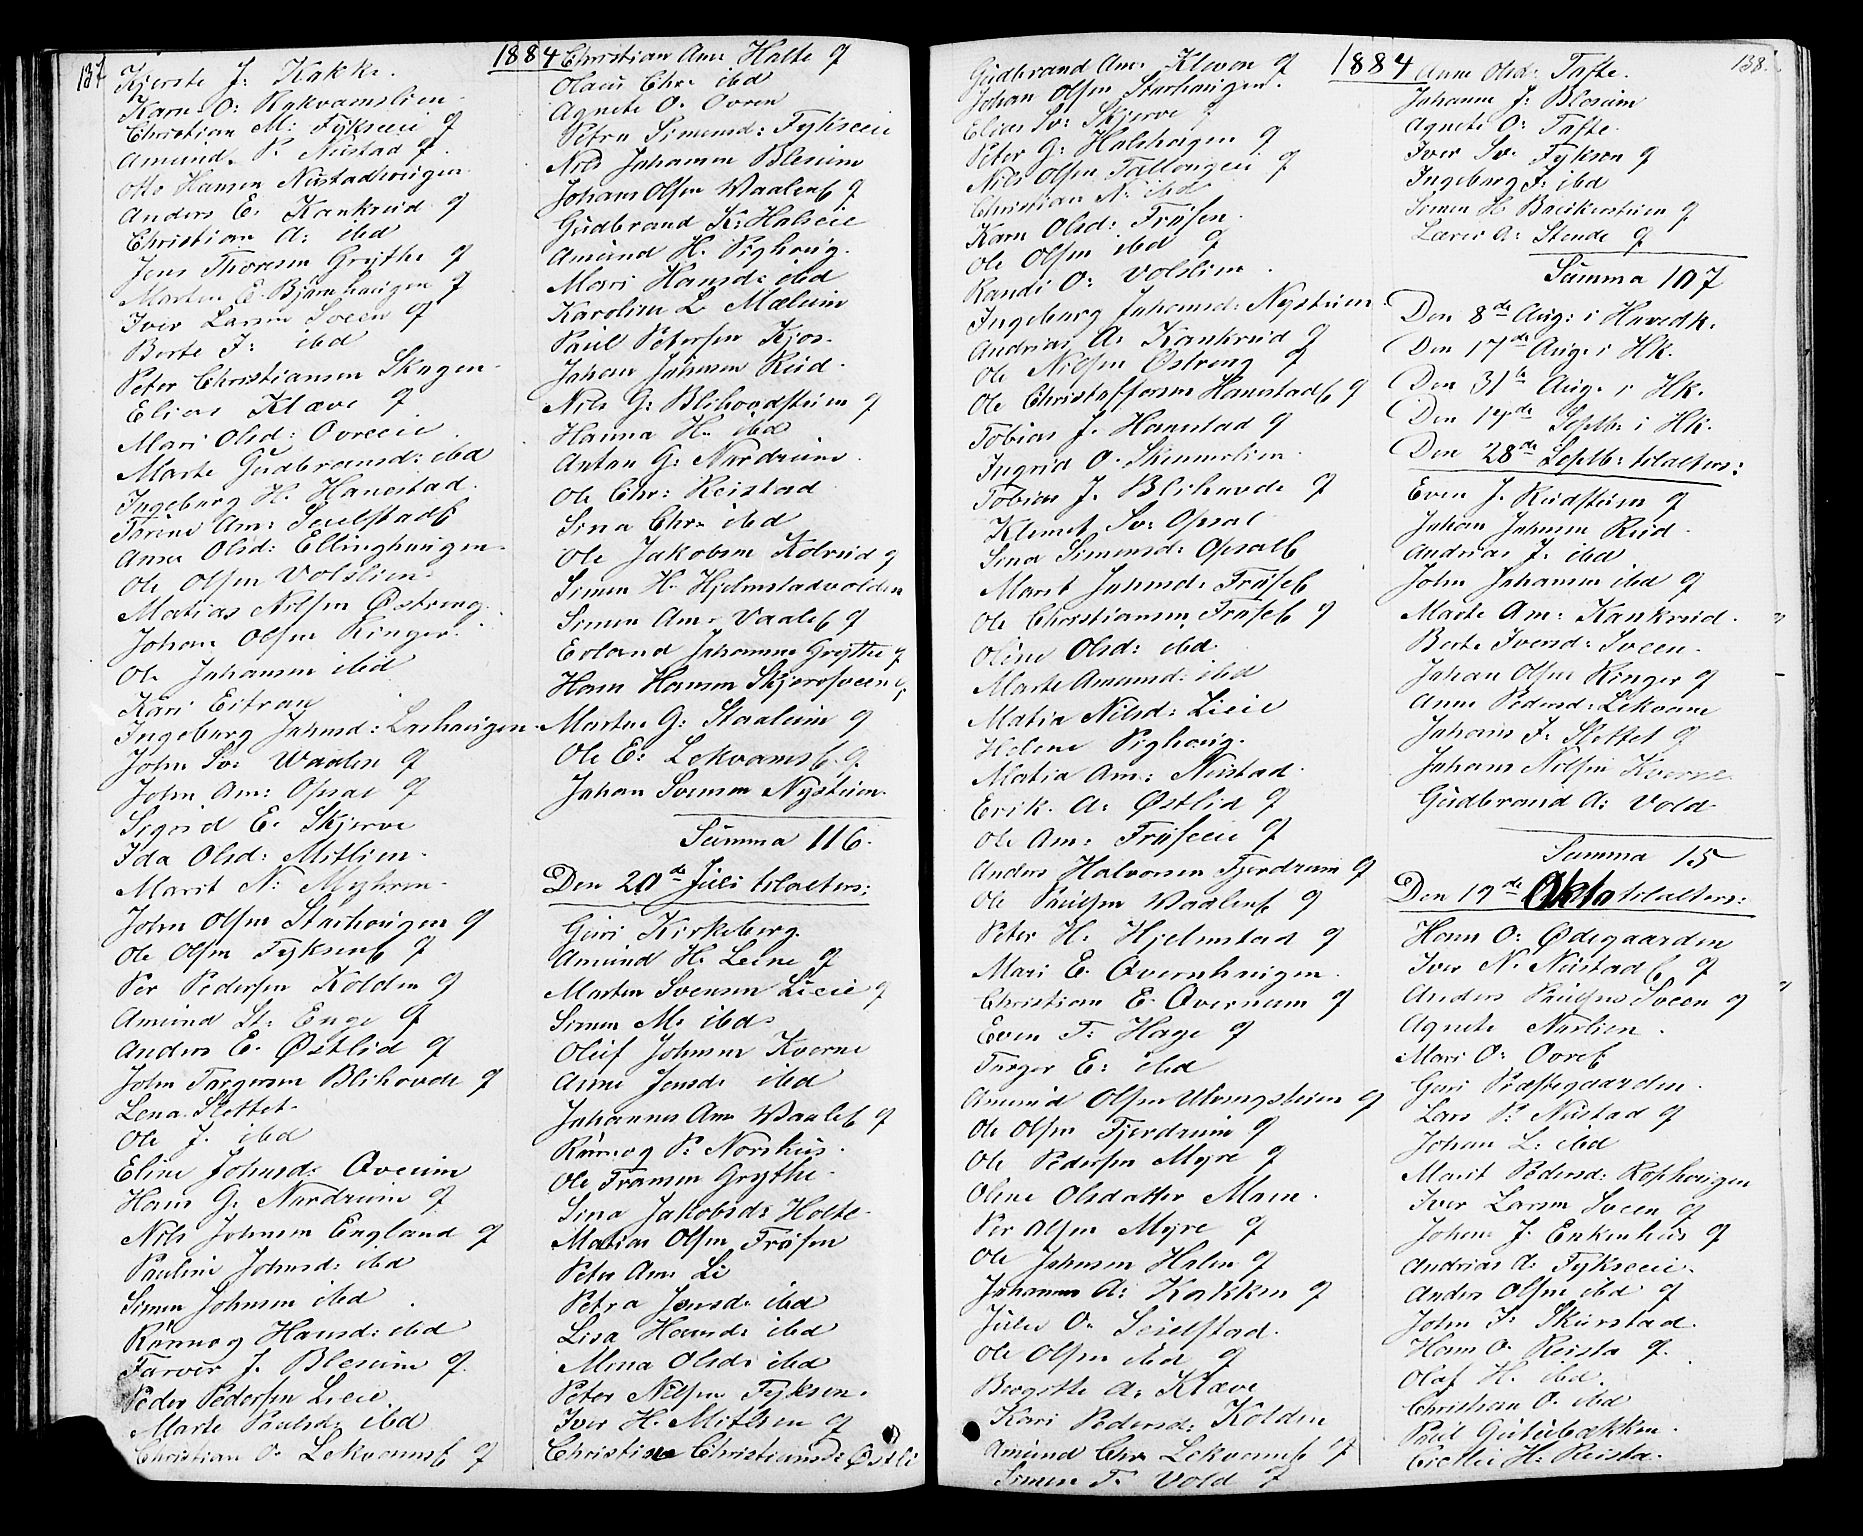 137
1884
Kjerste J: Kakk.
Karn O: Rakvamslien
Christian M: Fykseie q
Amund P. Nustad q.
Otto Hansen Nustadhougen
Anders E. Kankrud q
Christian A: ibd
Jens Thoresen Grythe q
Morten E. Bjørnhaugen q
Iver Larsen Sveen q
Berte J: ibd
Peter Christiansen Skagen
Elias Klæve q
Mari Olsd: Ovreeie
Marte Gudbransd: ibd
Ingeborg H. Hanestad.
Torine Am: Seielstad
Anne Olsd: Ellinghaugen
Ole Olsen Volslien
Matias Nilsen Østreng
Johan Olsen Ringer
Ole Johansen ibid
Kari Eitran
Ingeborg Johnsd: Larhaugen
John Sv: Waalen q
John Am: Opsal q
Sigrid E. Skjerve
Ida Olsd: Mitlien
Marit N: Myhren
John Olsen Starhougen q
Ole Olsen Fyksen q
Per Pedersen Kolden q
Amund St: Enge q
Anders E. Østlid q
John Torgersen Blihovde q
Lena Slettet
Ole J. ibd
Eline Johnsd: Qveum
Hans G: Nordrum q
Nils Johnsen England q
Pauline Johnsd: ibd
Simen Johnsen ibd
Rønnog Hansd: ibd
Tarver J. Blesum q.
Peder Pedersen Lieie
Marte Paulsd: ibd
Christian O. Lekvams q
Christian Am: Holte q
Olaus Chr: ibd
Agnete O. Ovren
Petra Simensd: Fykseeie
Nils Johannsen Blesum
Johans Olsen Waalen q
Gudbrand K: Halseie
Amund H. Pighoug.
Mari Hansd: ibd
Karoline L. Mælum
Paul Petersen Kjos.
Johan Johnsen Rud.
Nils G: Blihovdstuen q
Hanna H. ibd
Anton G: Nordrum
Ole Chr: Reistad
Sina Chr: ibd
Ole Jakobsen Kolrud q
Simen H. Hjelmstadvolden
Simen Am. Vaale q
Erland Johannsen Grythe q
Hans Hansen Skjervsveen
Marten G: Staaluum q
Ole E: Lekvams q
Johan Svensen Nystuen
Summa 116.
Den 20de Juli tilalters:
Guri Kirkeberg.
Amund H. Leine q
Morten Svensen Lieie q
Simen M. ibd
Oluf Johnsen Kverne
Anne Jensd: ibd
Johannes Am Waale q
Rønnog P: Norshus.
Ole Fransen Grythe
Sina Jakobsd: Holte
Matias Olsen Frøsen
Peter Am. Li
Petra Jensd: ibd
Lisa Hansd: ibd
Mona Olsd: ibd
Peter Nilsen Fyksen.
Iver H. Mitlien q
Christine Christiansd: Østli
1884
138.
Gudbrand Am. Kleven q
Johan Olsen Starhaugen.
Elias Sv: Skjerve q
Peter G: Halshagen q
Nils Olsen Tallangeie q
Christian N: ibd
Karn Olsd: Frøsen.
Ole Olsen ibd q
Randi O: Volslien
Ingeborg Johansd: Nystuen
Andreas A. Kankrud q
Ole Nilsen Østreng q
Ole Christoffersen Hanestad q
Tobias J. Hanestad q
Ingrid O. Skimmelien
Tobias J. Blihovde q
Klemet Sv: Opsal
Sina Simensd: Opsal
Marit Johnsd: Frøse
Ole Christiansen Frøse q
Oline Olsd: ibd.
Marte Amund: ibd
Matia Nilsd: Lieie
Helene Pighoug.
Matia Am: Nustad
Erik. A: Østlid q
Ole Am: Frøseeie q
Anders Halvorsen Fjerdrum q
Ole Paulsen Waalen q
Peter H. Hjelmstad q
Mari E. Qvernhaugen
Christian E. Qvernum q
Even T: Hage q
Torger E: ibd
Amund Olsen Ulvngstuen q
Ole Olsen Fjerdrum q
Ole Pedersen Myre q
Oline Olsdatter Moen.
Per Olsen Myre q
Ole Johnsen Halen q
Johannes A: Kakken q
Julie O. Seielstad.
Ole Olsen ibd q
Bergitte A: Klæve
Kari Pedersd: Kolden
Amund Chr. Lekvams q
Simen T. Vold q
Anne Olsd: Tofte.
Johanne J: Blesum
Agnete O: Tofte.
Iver Sv. Fyksen q
Ingeborg J: ibd
Simen H Brækkestuen q
Lærer A: Stende q
Summa 107
Den 8de Aug: i Hovedk.
Den 17de Aug: i Hk.
Den 31te Aug. i Hk.
Den 14de Septb: i Hk.
Den 28de Septb: tilalters:
Even J. Rudstuen q
Johan Johnsen Rud
Andrias J. ibd
John Johansen ibd q
Marte Am: Kankrud.
Berte Iversd: Sveen.
Johan Olsen Ringer q
Anne Pedersd: Lekvam
Johans J. Slettet q
Johans Nilsen Kverne
Gudbrand A: Vold
Summa 15
Den 19de Okto tilalters:
Hans O: Ødegaarden
Iver N. Nustad q
Anders Paulsen Sveen q
Agnete Narlien.
Mari O: Ovre
Guri Præstegaarden
Lars P: Nustad q
Johan L: ibd
Marit Pedersd: Rophougen
Iver Larsen Sveen q
Johan J. Enkenhus q
Andrias A. Fykseeie.
Anders Olsen ibd q
John J: Skurstad
Hans O. Reista q.
Olaf H. ibd.
Christian O. ibd
Paul Gutubækken.
Cicilie H: Reista.